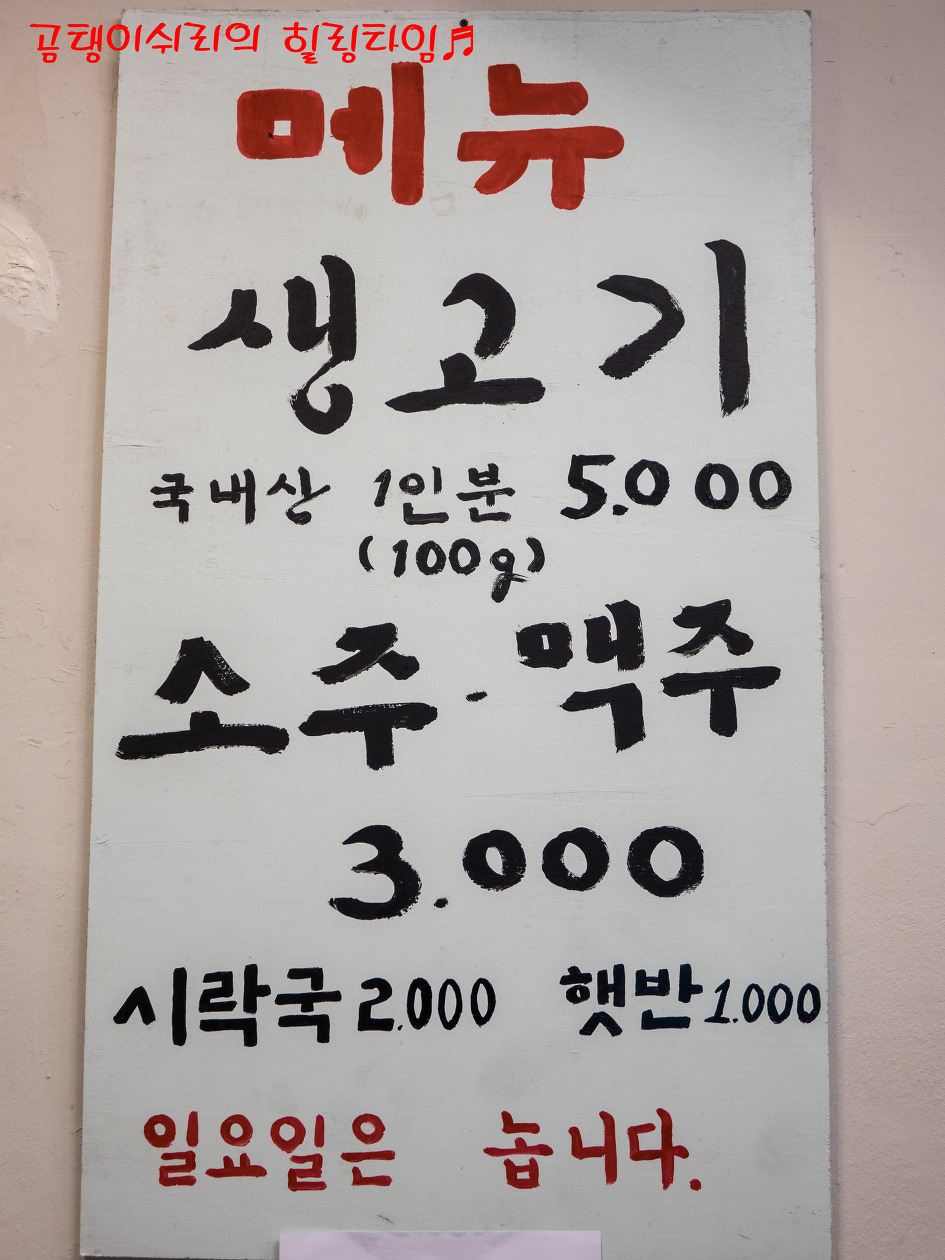 곰탱이쉬리의 힐링타임♬
메뉴
생고기
국내산 1인분 5.000
(100g)
소주·맥주
3.000
시락국 2.000 햇반 1.000
일요일은 놉니다.